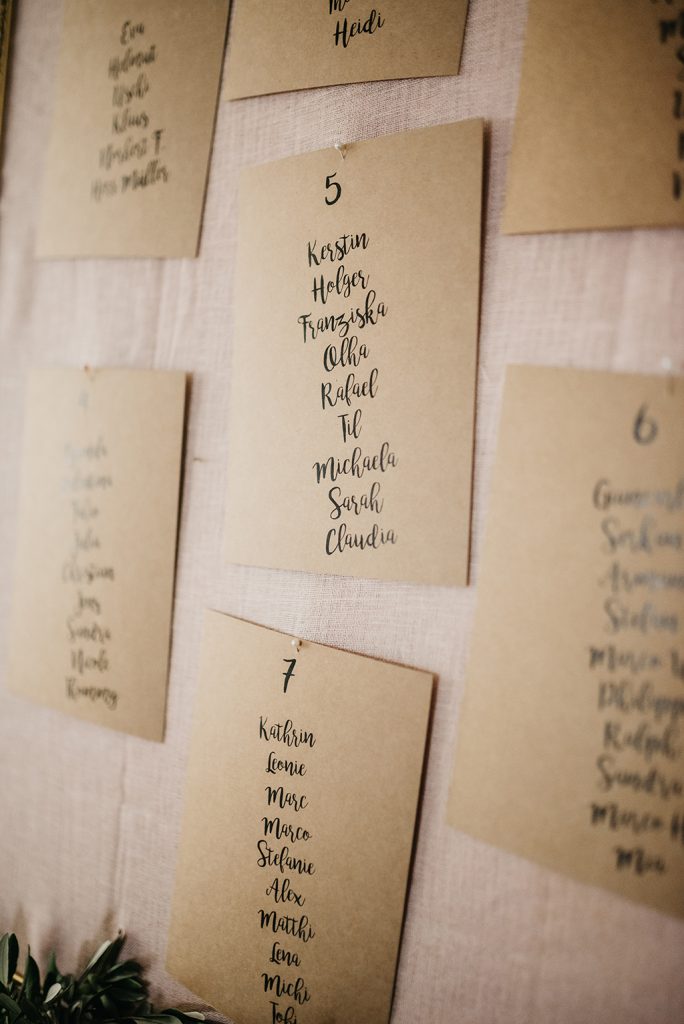 Eva
Helmut
Uschi
Klaus
Norbert F.
Hans Müller
Heidi
5
Kerstin
Holger
Franziska
Olha
Rafael
Til
Michaela
Sarah
Claudia
4
Julia
Christian
Jens
Sandra
Nicole
6
Serkan
Stefan
Philipp
Ralph
Sandra
Mia
7
Kathrin
Leonie
Marc
Marco
Stefanie
Alex
Matthi
Lena
Michi
Tobi